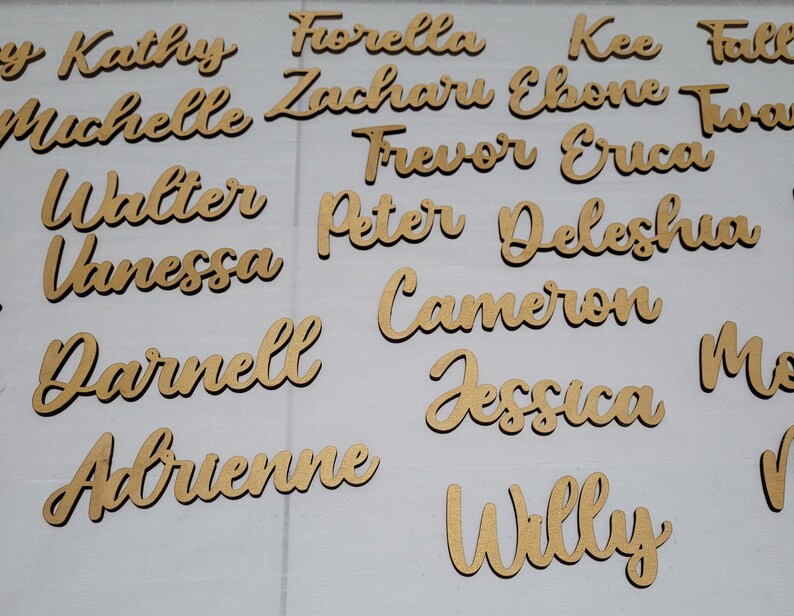 Kathy Fiorella Kee
Michelle Zachari Ebone
Trevor Erica
Walter Peter Deleshia
Vanessa
Cameron
Darnell
Jessica
Adrienne
Willy